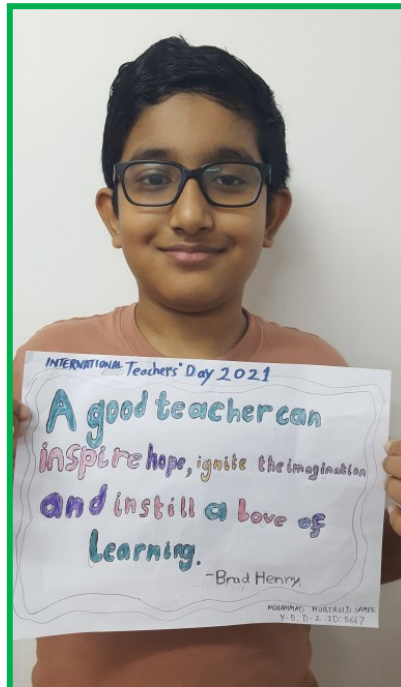 INTERNATIONAL Teachers' Day 2021
A good teacher can
inspire hope, ignite the imagination
and instill a Love of
Learning.
-Brad Henry.
MOHAMMAD MUQTASID SAMEE
Y-5, D-2. ID: 5667